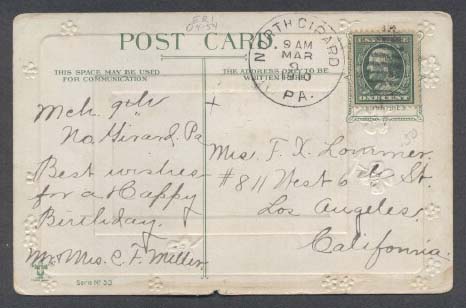 POST CARD
THIS SPACE MAY BE USED
FOR COMMUNICATION
THE ADDRESS ONLY TO BE
WRITTEN
NORTH GIRARD
9 AM
MAR
9
PA.
ONE CENT
Mch. 9th
No. Girard, Pa
Best wishes
for a Happy
Birthday.
Mr. Mrs. C. F. Miller
Mrs. F. X.
#811 West 6th St.
Los Angeles
California.
Serie No 53